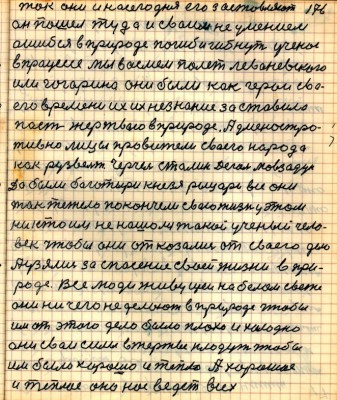 так они и насегодня его заставляют 176
он пошел туда и своим не умением
ошибся в природе погиб гибнут ученые
в працессе мы возмем полет леваневского
или гогарина они были как герои сва-
его времени их их незнание заставило
пасть жертваю в природе. Админостра-
тивно лицы провители своего народа
как рузвелт Черчел сталин Деголь мовзадун
Да были боготыри князя рицаря все они
так тежело покончем сваю жизнь у этом
никто им не нашол такой ученый чело-
век чтобы они отказались от своего дела
А узялись за спасение своей жизни в при-
роде. Все люди живущеи на белом свете
они ни чего не делают в природе чтобы
им от этого дело было плохо и холодно
они сваи силы в жертвы кладут чтобы
им было хорошо и тепло А хорошая
и теплое оно нас ведет всех